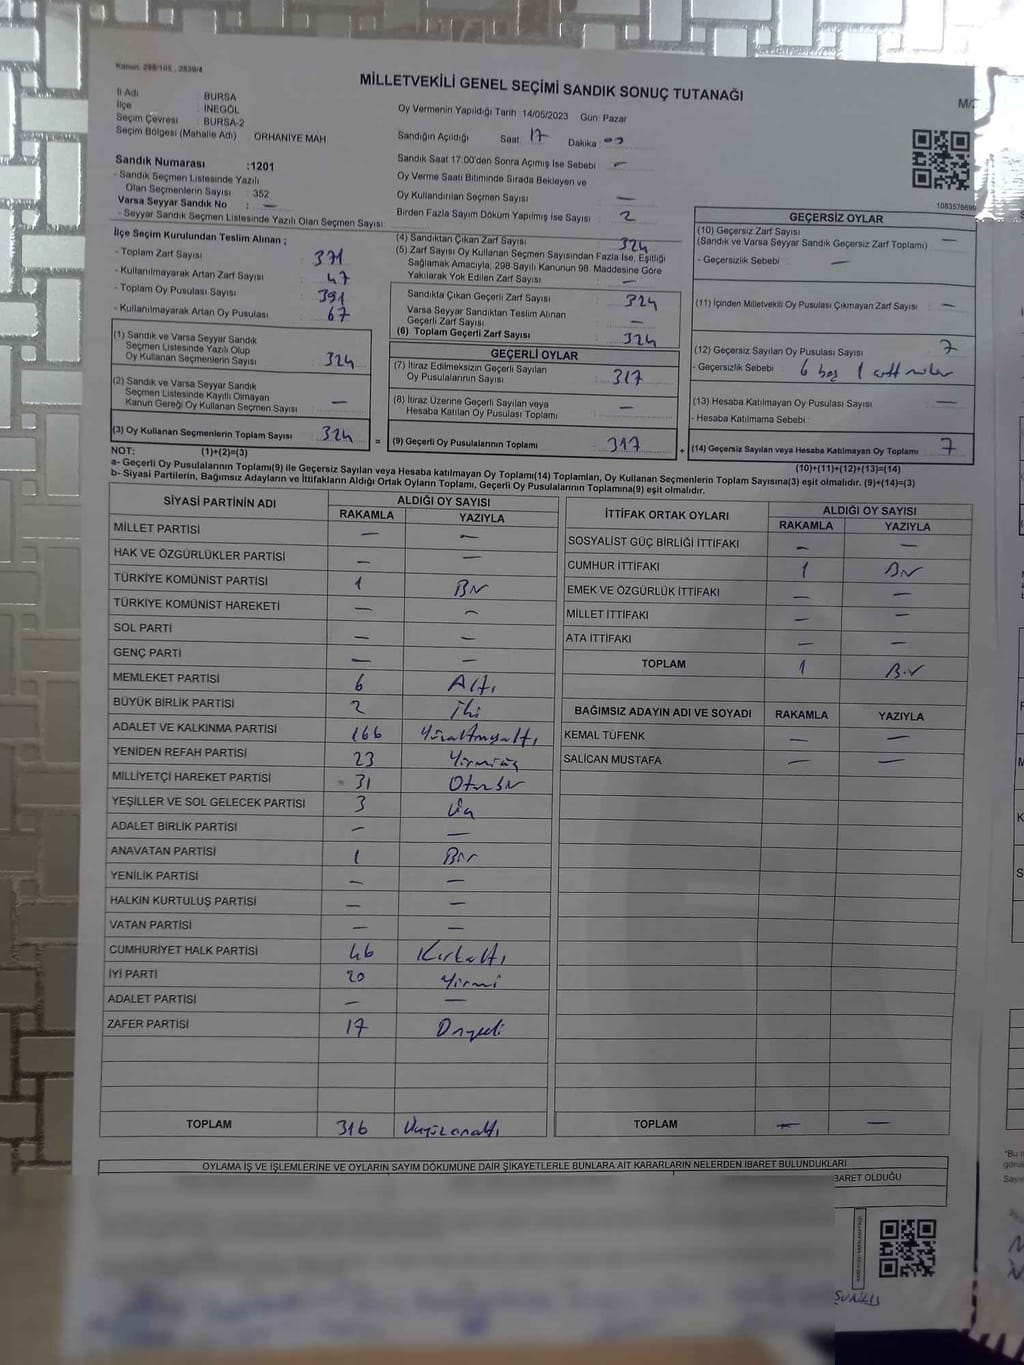 Kanun: 298/105, 2839/4
MİLLETVEKİLİ GENEL SEÇİMİ SANDIK SONUÇ TUTANAĞI
İl Adı : BURSA
İlçe : İNEGÖL
Seçim Çevresi : BURSA-2
Seçim Bölgesi (Mahalle Adı) : ORHANİYE MAH
Sandık Numarası :1201
- Sandık Seçmen Listesinde Yazılı
Olan Seçmenlerin Sayısı : 352
Varsa Seyyar Sandık No : —
- Seyyar Sandık Seçmen Listesinde Yazılı Olan Seçmen Sayısı:
Oy Vermenin Yapıldığı Tarih :14/05/2023 Gün: Pazar
Sandığın Açıldığı Saat: 17 Dakika:
Sandık Saat 17:00'den Sonra Açımış İse Sebebi : —
Oy Verme Saati Bitiminde Sırada Bekleyen ve
Oy Kullandırılan Seçmen Sayısı : —
Birden Fazla Sayım Döküm Yapılmış İse Sayısı : 2
1083576699
İlçe Seçim Kurulundan Teslim Alınan ;
- Toplam Zarf Sayısı : 371
- Kullanılmayarak Artan Zarf Sayısı : 47
- Toplam Oy Pusulası Sayısı : 391
- Kullanılmayarak Artan Oy Pusulası : 67
(1) Sandık ve Varsa Seyyar Sandık
Seçmen Listesinde Yazılı Olup
Oy Kullanan Seçmenlerin Sayısı : 324
(2) Sandık ve Varsa Seyyar Sandık
Seçmen Listesinde Kayıtlı Olmayan
Kanun Gereği Oy Kullanan Seçmen Sayısı : —
(3) Oy Kullanan Seçmenlerin Toplam Sayısı : 324
(4) Sandıktan Çıkan Zarf Sayısı : 324
(5) Zarf Sayısı Oy Kullanan Seçmen Sayısından Fazla İse, Eşitliği
Sağlamak Amacıyla; 298 Sayılı Kanunun 98. Maddesine Göre
Yakılarak Yok Edilen Zarf Sayısı : —
Sandıkta Çıkan Geçerli Zarf Sayısı : 324
Varsa Seyyar Sandıktan Teslim Alınan
Geçerli Zarf Sayısı : —
(6) Toplam Geçerli Zarf Sayısı : 324
GEÇERLİ OYLAR
(7) İtiraz Edilmeksizin Geçerli Sayılan
Oy Pusulalarının Sayısı : 317
(8) İtiraz Üzerine Geçerli Sayılan veya
Hesaba Katılan Oy Pusulası Toplamı : —
= (9) Geçerli Oy Pusulalarının Toplamı : 317
GEÇERSİZ OYLAR
(10) Geçersiz Zarf Sayısı
(Sandık ve Varsa Seyyar Sandık Geçersiz Zarf Toplamı) : —
- Geçersizlik Sebebi : —
(11) İçinden Milletvekili Oy Pusulası Çıkmayan Zarf Sayısı : —
(12) Geçersiz Sayılan Oy Pusulası Sayısı : 7
- Geçersizlik Sebebi : 6 boş 1
(13) Hesaba Katılmayan Oy Pusulası Sayısı : —
- Hesaba Katılmama Sebebi :
+ (14) Geçersiz Sayılan veya Hesaba Katılmayan Oy Toplamı : 7
NOT: (1)+(2)=(3)
(10)+(11)+(12)+(13)=(14)
a- Geçerli Oy Pusulalarının Toplamı(9) ile Geçersiz Sayılan veya Hesaba katılmayan Oy Toplamı(14) Toplamları, Oy Kullanan Seçmenlerin Toplam Sayısına(3) eşit olmalıdır. (9)+(14)=(3)
b- Siyasi Partilerin, Bağımsız Adayların ve İttifakların Aldığı Ortak Oyların Toplamı, Geçerli Oy Pusulalarının Toplamına(9) eşit olmalıdır.
SİYASİ PARTİNİN ADI ALDIĞI OY SAYISI
RAKAMLA YAZIYLA
MİLLET PARTİSİ — —
HAK VE ÖZGÜRLÜKLER PARTİSİ — —
TÜRKİYE KOMÜNİST PARTİSİ 1 Bir
TÜRKİYE KOMÜNİST HAREKETİ — —
SOL PARTİ — —
GENÇ PARTİ — —
MEMLEKET PARTİSİ 6 Altı
BÜYÜK BİRLİK PARTİSİ 2 iki
ADALET VE KALKINMA PARTİSİ 166 Yüzaltmışaltı
YENİDEN REFAH PARTİSİ 23 Yirmiüç
MİLLİYETÇİ HAREKET PARTİSİ 31 Otuzbir
YEŞİLLER VE SOL GELECEK PARTİSİ 3 Üç
ADALET BİRLİK PARTİSİ — —
ANAVATAN PARTİSİ 1 Bir
YENİLİK PARTİSİ — —
HALKIN KURTULUŞ PARTİSİ — —
VATAN PARTİSİ — —
CUMHURİYET HALK PARTİSİ 46 Kırkaltı
İYİ PARTİ 20 Yirmi
ADALET PARTİSİ — —
ZAFER PARTİSİ 17 Onyedi
TOPLAM 316 Üçyüzonaltı
İTTİFAK ORTAK OYLARI ALDIĞI OY SAYISI
RAKAMLA YAZIYLA
SOSYALİST GÜÇ BİRLİĞİ İTTİFAKI — —
CUMHUR İTTİFAKI 1 Bir
EMEK VE ÖZGÜRLÜK İTTİFAKI — —
MİLLET İTTİFAKI — —
ATA İTTİFAKI — —
TOPLAM 1 Bir
BAĞIMSIZ ADAYIN ADI VE SOYADI RAKAMLA YAZIYLA
KEMAL TÜFENK — —
SALİCAN MUSTAFA — —
TOPLAM — —
OYLAMA İŞ VE İŞLEMLERİNE VE OYLARIN SAYIM DÖKÜMÜNE DAİR ŞİKAYETLERLE BUNLARA AİT KARARLARIN NELERDEN İBARET BULUNDUKLARI
BARET OLDUĞU